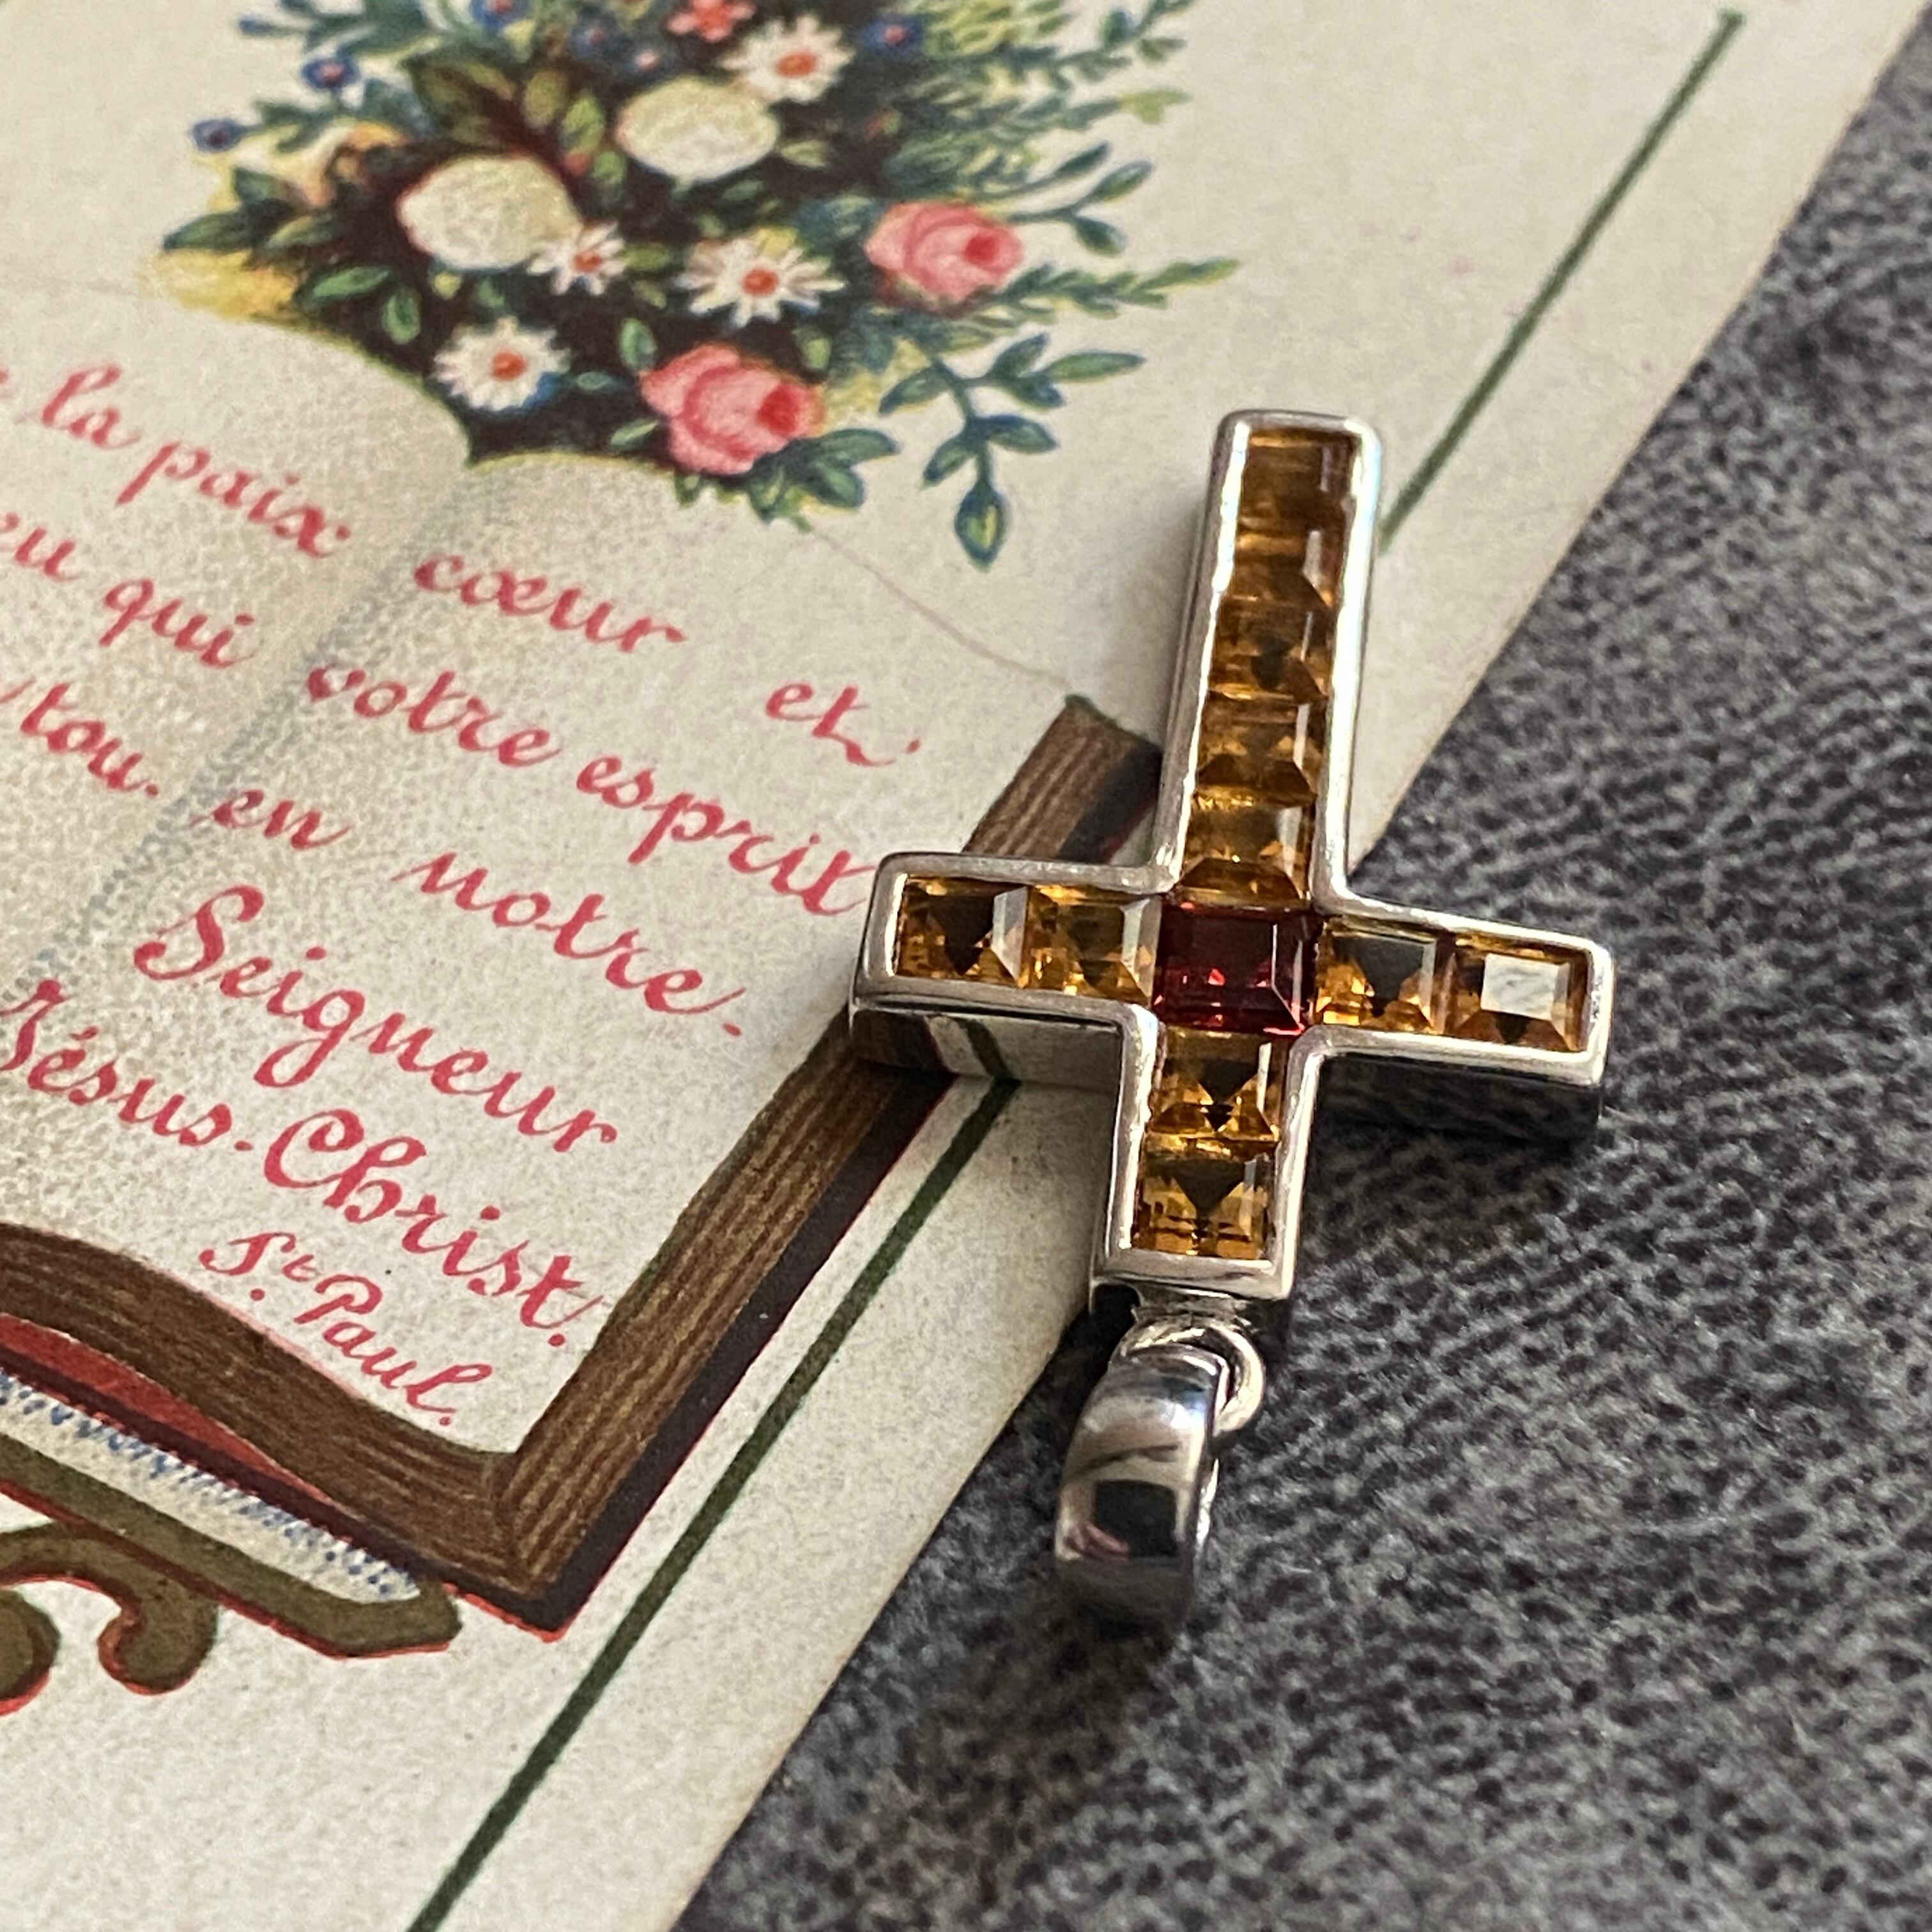 la paix
qui
cœur et
votre esprit
en notre
Seigneur
Jésus-Christ.
St Paul.